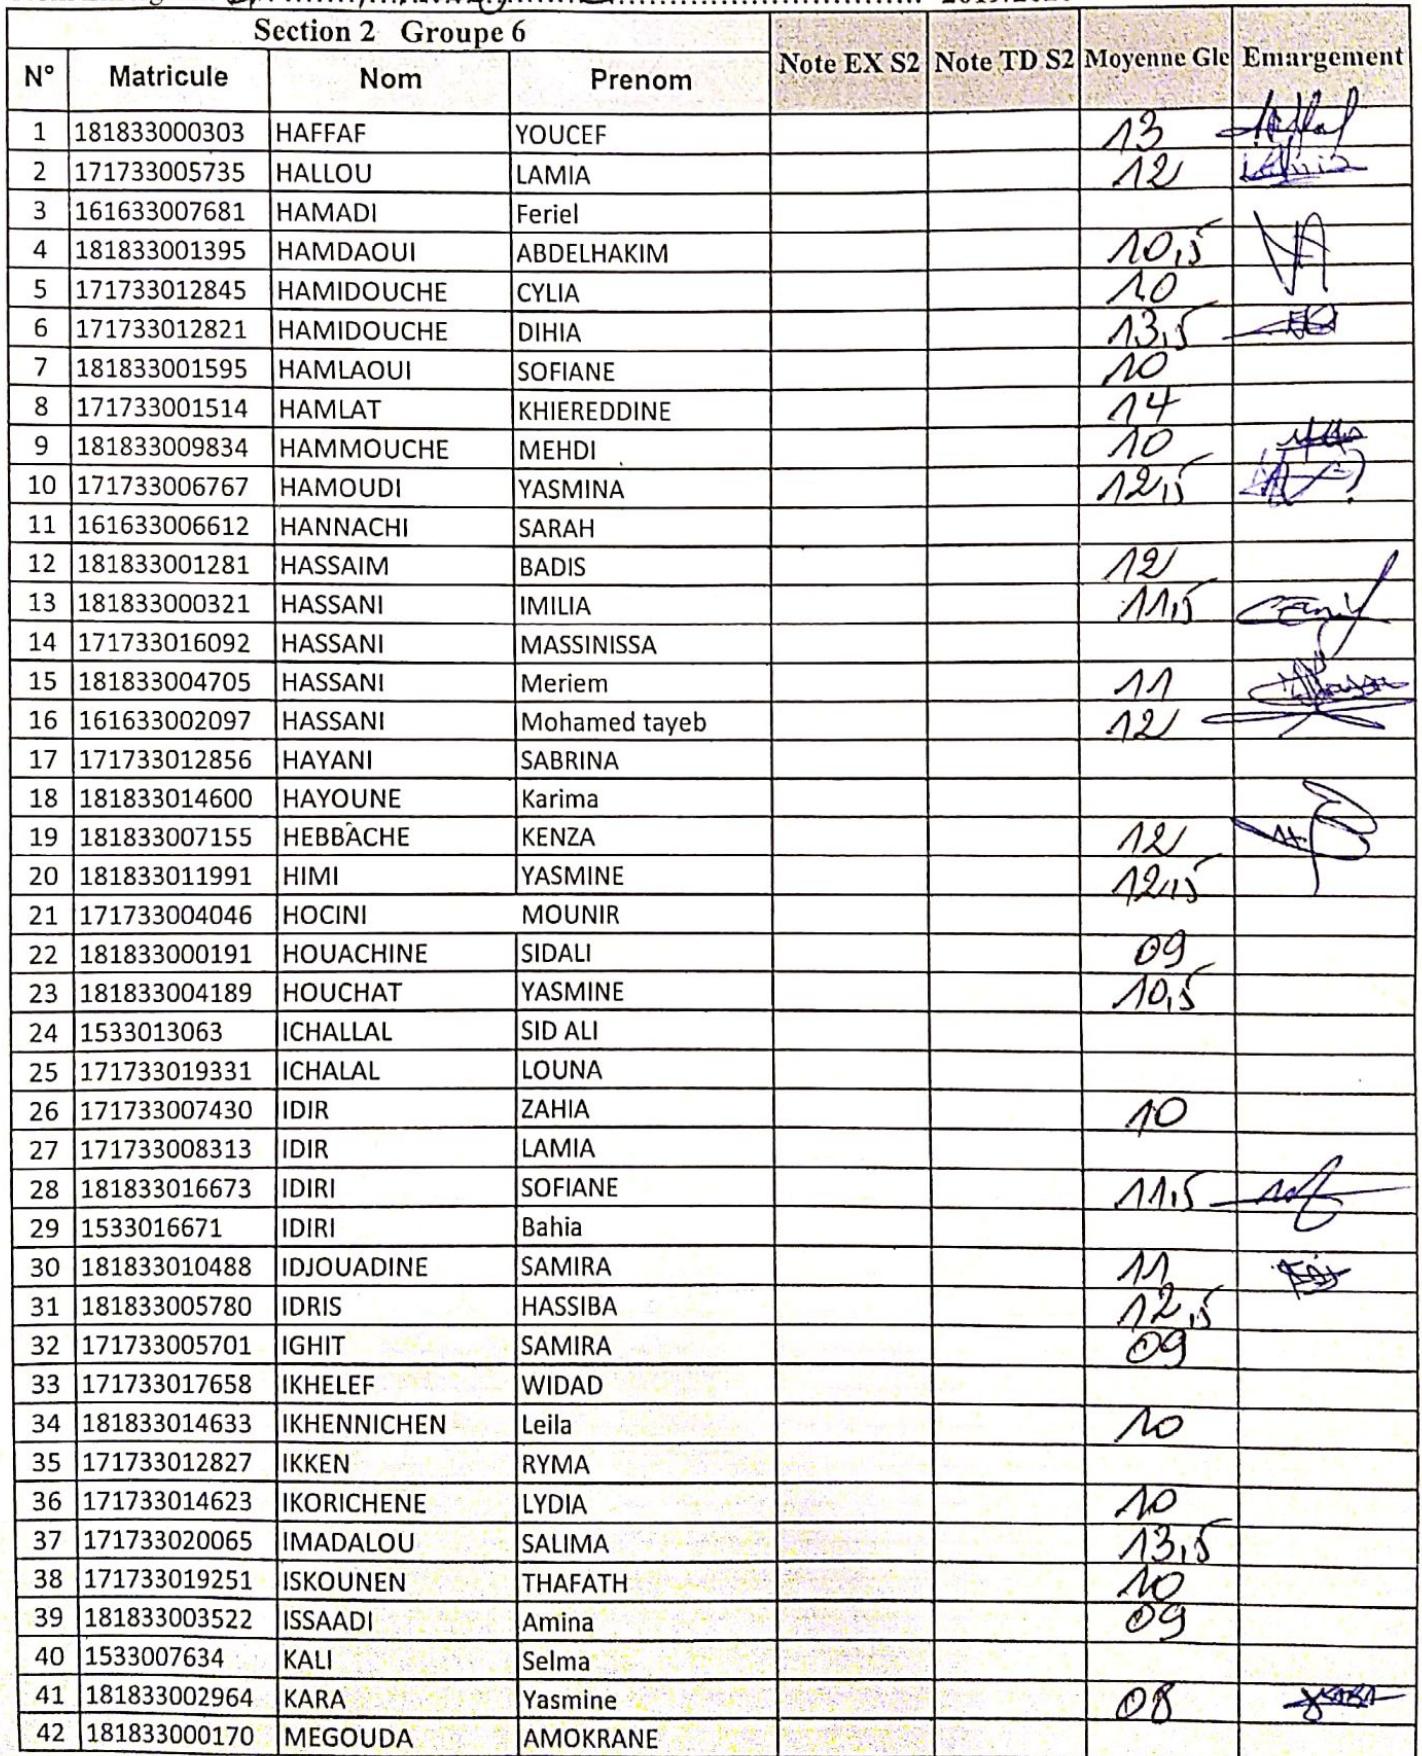 Section 2 Groupe 6
N° Matricule Nom Prenom Note EX S2 Note TD S2 Moyenne Gle Emargement
1 181833000303 HAFFAF YOUCEF 13
2 171733005735 HALLOU LAMIA 12
3 161633007681 HAMADI Feriel
4 181833001395 HAMDAOUI ABDELHAKIM 10,5
5 171733012845 HAMIDOUCHE CYLIA 10
6 171733012821 HAMIDOUCHE DIHIA 13,5
7 181833001595 HAMLAOUI SOFIANE 10
8 171733001514 HAMLAT KHIEREDDINE 14
9 181833009834 HAMMOUCHE MEHDI 10
10 171733006767 HAMOUDI YASMINA 12,5
11 161633006612 HANNACHI SARAH
12 181833001281 HASSAIM BADIS 12
13 181833000321 HASSANI IMILIA 11,5
14 171733016092 HASSANI MASSINISSA
15 181833004705 HASSANI Meriem 11
16 161633002097 HASSANI Mohamed tayeb 12
17 171733012856 HAYANI SABRINA
18 181833014600 HAYOUNE Karima
19 181833007155 HEBBACHE KENZA 12
20 181833011991 HIMI YASMINE 12,5
21 171733004046 HOCINI MOUNIR
22 181833000191 HOUACHINE SIDALI 09
23 181833004189 HOUCHAT YASMINE 10,5
24 1533013063 ICHALLAL SID ALI
25 171733019331 ICHALAL LOUNA
26 171733007430 IDIR ZAHIA 10
27 171733008313 IDIR LAMIA
28 181833016673 IDIRI SOFIANE 11,5
29 1533016671 IDIRI Bahia
30 181833010488 IDJOUADINE SAMIRA 11
31 181833005780 IDRIS HASSIBA 12,5
32 171733005701 IGHIT SAMIRA 09
33 171733017658 IKHELEF WIDAD
34 181833014633 IKHENNICHEN Leila 10
35 171733012827 IKKEN RYMA
36 171733014623 IKORICHENE LYDIA 10
37 171733020065 IMADALOU SALIMA 13,5
38 171733019251 ISKOUNEN THAFATH 10
39 181833003522 ISSAADI Amina 09
40 1533007634 KALI Selma
41 181833002964 KARA Yasmine 08
42 181833000170 MEGOUDA AMOKRANE